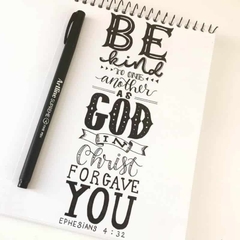 BE
kind
TO ONE
another
AS
GOD
IN
Christ
FORGAVE
YOU
EPHESIANS 4:32
Artline